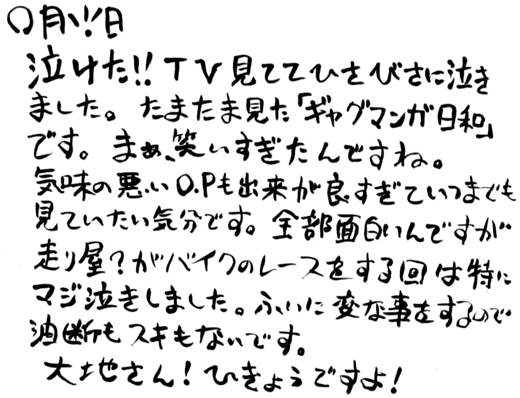 ○月!!日
泣けた!!TV見ててひさびさに泣き
ました。たまたま見た「ギャグマンガ日和」
です。まぁ、笑いすぎたんですね。
気味の悪いO.Pも出来が良すぎていつまでも
見ていたい気分です。全部面白いんですが
走り屋?がバイクのレースをする回は特に
マジ泣きしました。ふいに変な事をするので
油断もスキもないです。
大地さん!ひきょうですよ!